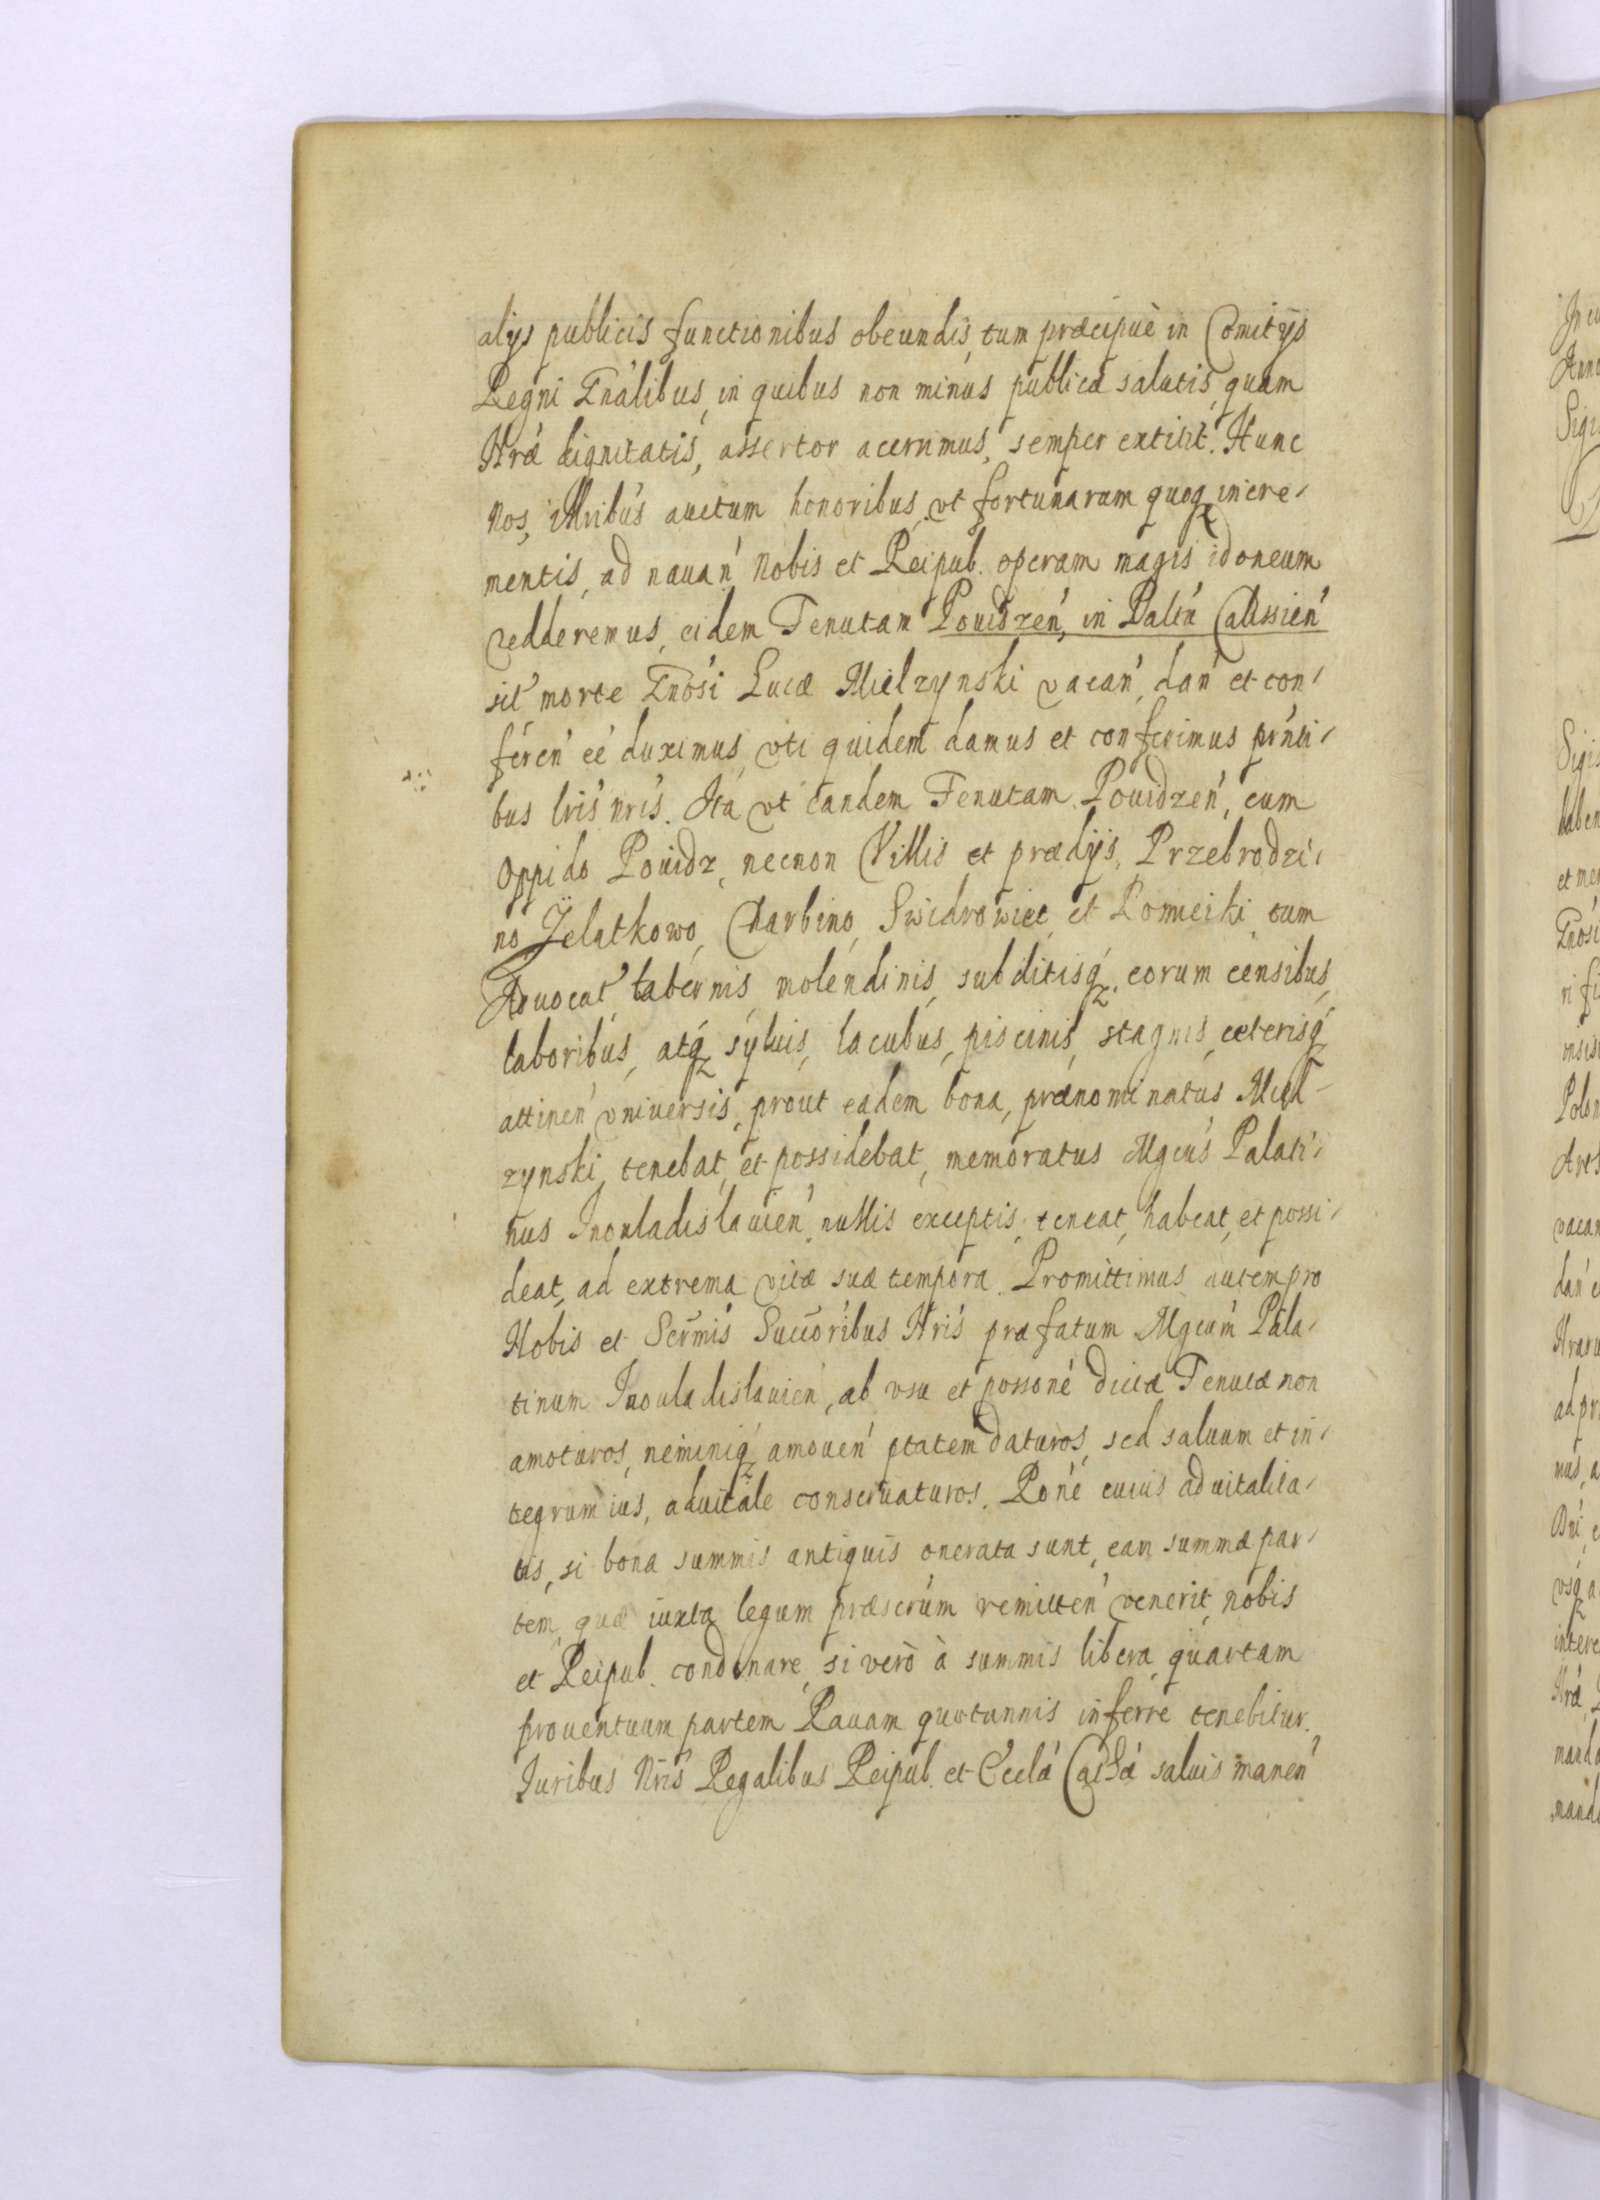 alijs publicis functionibus obeundis, tum præcipuè in Comitijs
Regni Gnalibus, in quibus non minus publicæ salutis, quam
Nræ dignitatis, assertor acerrimus, semper extitit. Hunc
Nos, illribus auctum honoribus, vt fortunarum quoq incre-
mentis, ad nauan Nobis et Reipub. operam magis idoneum
redderemus, eidem Tenutam Pouidzen, in Palin Calissien
sit morte Gnosi Lucæ Mielzynski vacan, dan et con-
feren eê duximus, vti quidem damus et conferimus prnti-
bus lris nris. Ita vt eandem Tenutam Pouidzen, cum
Oppido Pouidz, necnon Villis et prædijs, Przebrodzi-
no Jelatkowo, Charbino, Swidrowiec et Pomieiki tum
Aduocat tabernis molendinis, subditisq, eorum censibus,
laboribus, atq syluis, lacubus, piscinis, stagnis, ceterisq
attinen vniuersis, prout eadem bona, prænominatus Miel-
zynski, tenebat, et possidebat, memoratus Mgcus Palati-
nus Inouladislauien, nullis exceptis, teneat, habeat, et possi-
deat, ad extrema vitæ suæ tempora. Promittimus autem pro
Nobis et Sermis Succoribus Nris præfatum Mgcum Pala-
tinum Inouladislauien, ab vsu et possone dictæ Tenutæ non
amoturos, neminiq amouen ptatem daturos, sed saluum et in-
tegrum ius, aduitale conseruaturos. Rone cuius aduitalita-
tis, si bona summis antiquis onerata sunt, eam summæ par-
tem, quæ iuxta legum præscrum remitten venerit, nobis
et Reipub. condonare, si verò à summis libera, quartam
prouentuum partem Rauam quotannis inferre tenebitur.
Iuribus Nris Regalibus Reipub. et Eccla Cathæ saluis manen